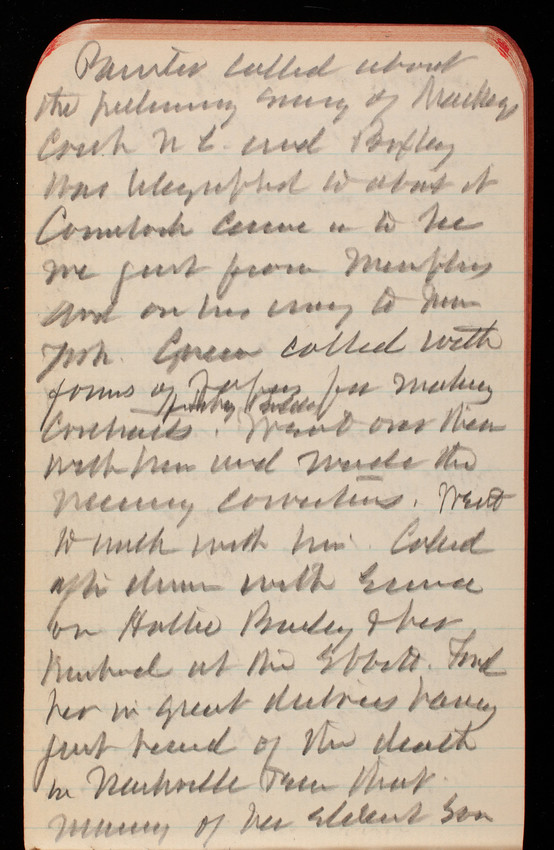 Painter called about
the preliminary survey of Mackeys
Creek N C. and Bixley
was telegraphed to about it
Comstock came in to see
me just from Memphis
and on his way to New
York. Green called with
forms of papers for making
Public Bldg
Contracts. Went over them
with him and made the
necessary corrections. Went
to walk with him. Called
after dinner with Emma
on Hattie Bailey & her
husband at the Ebbitt. Found
her in great distress having
just heard of the death
in Nashville Tenn that
morning of her eldest son